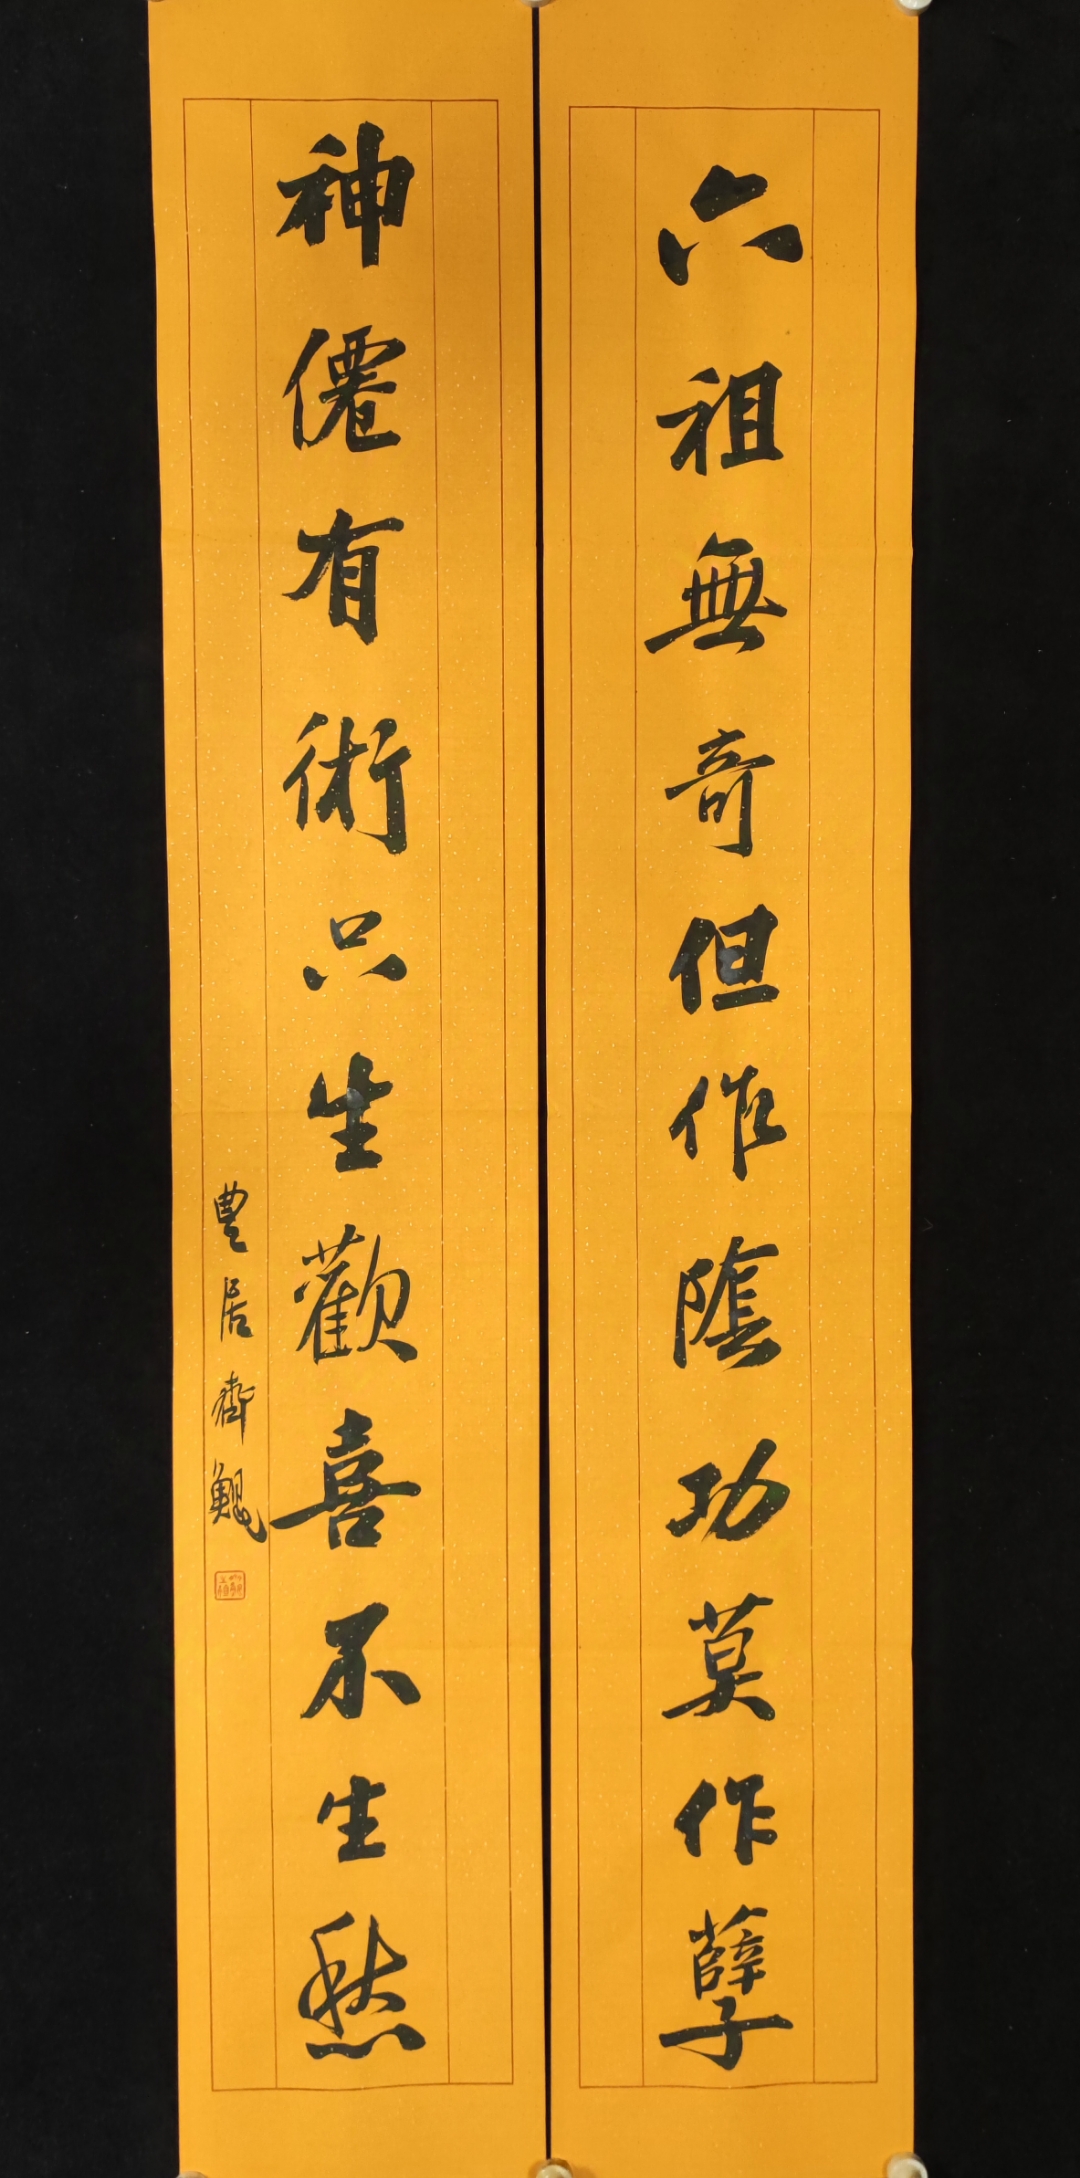 六祖無奇但作陰功莫作孽
神僊有術只生歡喜不生愁
豊居齋鯤